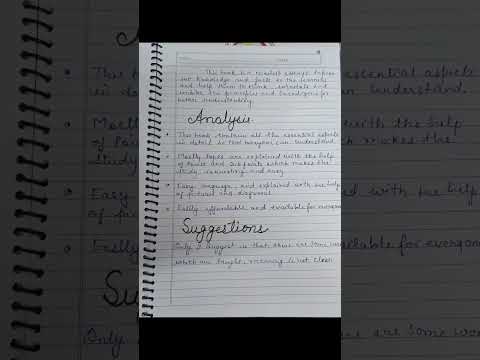 This book is a always
our knowledge and facts to the learners
and help them to think, correlate and
the principles and for
better understanding.
Analysis.
• This book contain all the essential aspects
in detail so that everyone can understand.
• Mostly topic are explained with the help
of Points and Sub points which makes the
study interesting and easy.
• Easy language, and explained with the help
of pictures and diagrams.
• Easily affordable and available for everyone
Suggestions
Only I suggest is that there are some
which are meaning is not clear